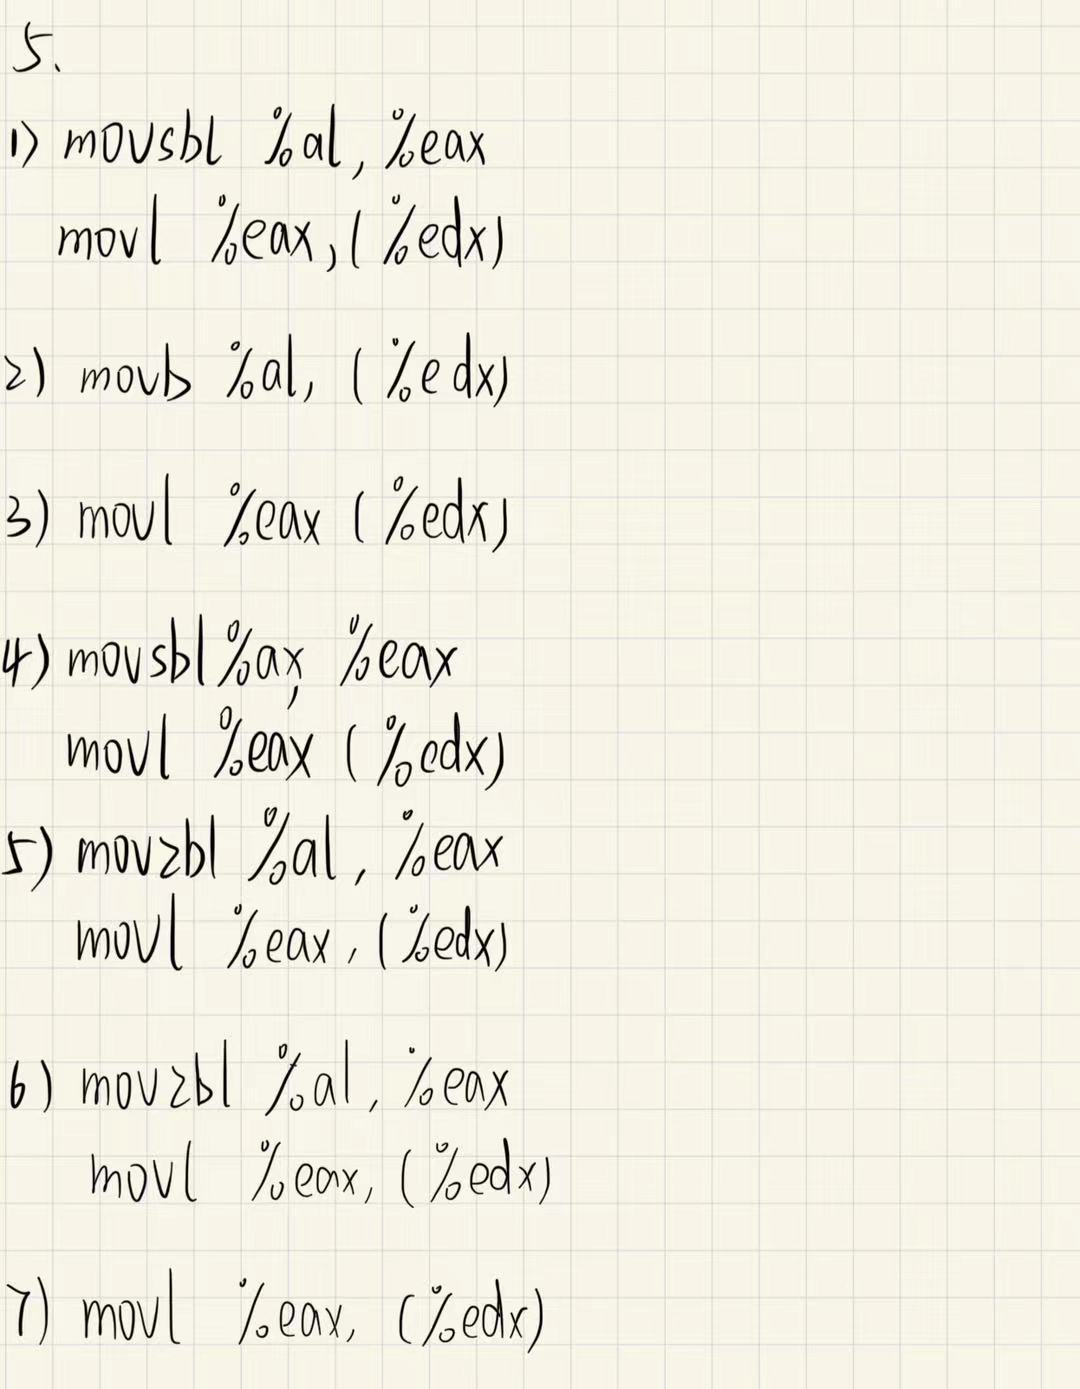 5.
1) movsbl %al, %eax
movl %eax, (%edx)
2) movb %al, (%edx)
3) movl %eax (%edx)
4) movsbl %ax, %eax
movl %eax (%edx)
5) movzbl %al, %eax
movl %eax, (%edx)
6) movzbl %al, %eax
movl %eax, (%edx)
7) movl %eax, (%edx)